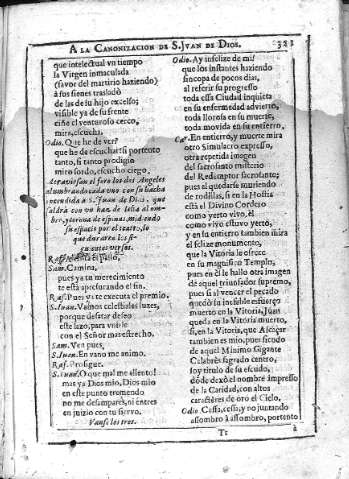 A LA CANONIZACION DE S. JVAN DE DIOS. 321
que intelectual vn tiempo
la Virgen inmaculada
(favor del martirio haziendo)
à sus sienes trasladò
de las de su hijo excelso;
visible ya de su frente
ciñe el venturoso cerco,
mira, escucha.
Odio. Què he de ver?
que he de escuchar si portento
tanto, si tanto prodigio
miro sordo, escucho ciego,
alumbrando cada vno con su hacha
encendida à S. Juan de Dios, que
saldrà con vn han de tela al ombro,
y corona de espinas, midiendo
su espacio por el teatro, lo
que duraren los siguientes
versos.
Sam. Camina,
pues ya tu merecimiento
te està apresurando el fin.
Raf. Pues ya te executa el premio.
S. Juan. Vamos celestiales luzes,
porque desatar deseo
este lazo, para vnirle
con el Señor maestre hecho.
Sam. Ven pues.
S. Juan. En vano me animo.
Raf. Prosigue.
S. Juan. O que mal me aliento!
mas ya Dios mio, Dios mio
en este punto tremendo
no me desampares, ni entres
en juizio con tu siervo.
Vanse los tres.
Odio. Ay infelize de mi!
que los instantes haziendo
sincopa de pocos dias,
al referir su progresso
toda essa Ciudad inquieta
en su enfermedad advierto,
toda llorosa en su muerte,
toda movida en su entierro.
Car. En entierro, y muerte mira
otro Simulacro expresso,
otra repetida imagen
del sacrosanto misterio
del Redemptor sacrosanto;
pues al quedarse muriendo
de rodillas, si en la Hostia
està el Divino Cordero
como yerto vivo, èl
como vivo estuvo yerto,
y en su entierro tambien mira
el felize monumento,
que la Vitoria le ofrece
en su magnifico Templo,
pues en èl le hallo otra imagen
de aquel triunfador supremo,
pues si al vencer el pecado
quedò su invencible esfuerço
muerto en la Vitoria, Juan
queda en la Vitoria muerto,
si, en la Vitoria, que Alcaçar
tambien es mio, pues siendo
de aquel Minimo Gigante
Calabrès sagrado centro,
soy titulo de su escudo,
dõde dexò el nombre impresso
de la Caridad, con altos
caractères de oro el Cielo.
Odio. Cessa, cessa, y no juntando
assombro à assombro, portento
Tt à